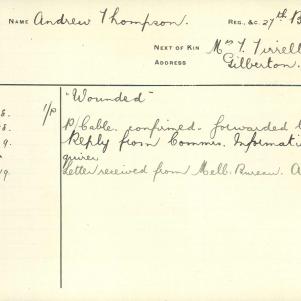 NAME Andrew Thompson. REG., &C. 27th B
NEXT OF KIN Mrs T. Tirrell
ADDRESS Gilberton.
8. 1/P "Wounded"
8. P/Cable. confirmed. forwarded
9. Reply from Commis. Informati
quirer
19. Letter received from Melb. Bureau. A